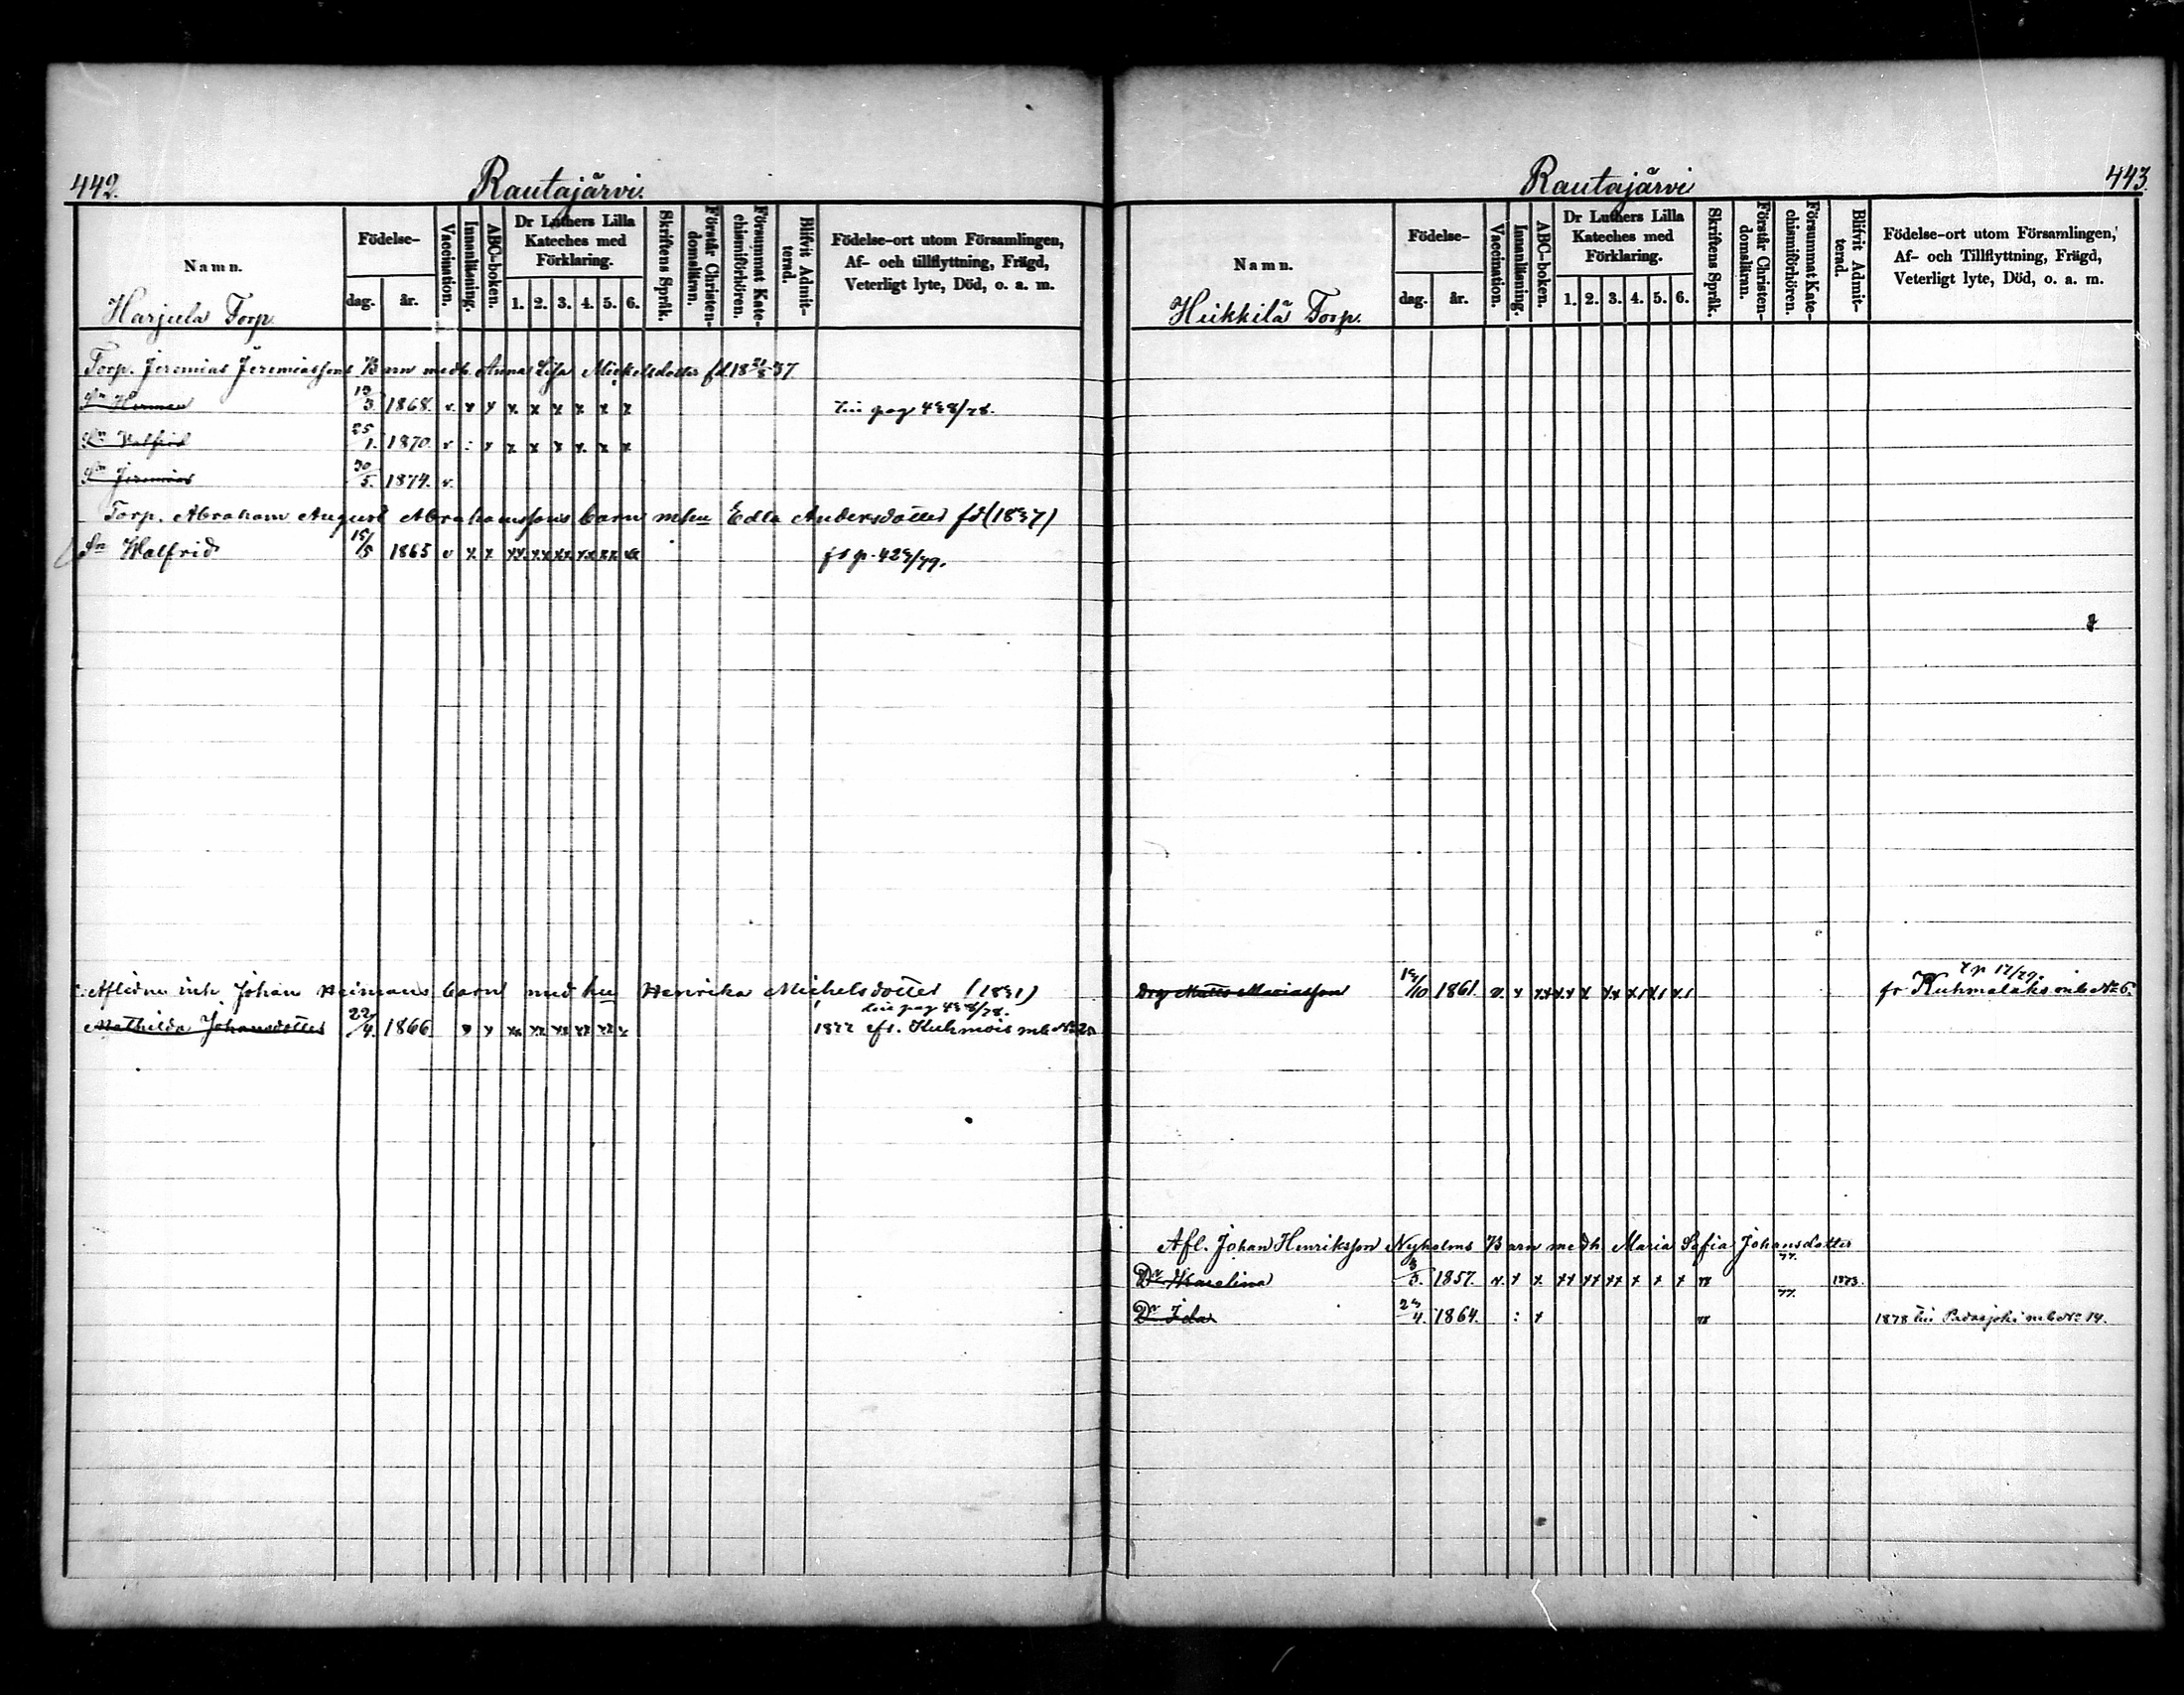 442.
Rautajärvi.
Namn.
Födelse-
dag.
år.
Vaccination.
Innanläsning.
ABC-boken.
Dr Luthers Lilla
Kateches med
Förklaring.
1. 2. 3. 4. 5. 6.
Skriftens Språk.
Förstår Christen-
domsläran.
Försummat Kate-
chismiförhören.
Blifvit Admit-
terad.
Födelse-ort utom Församlingen,
Af- och tillflyttning, Frägd,
Veterligt lyte, Död, o. a. m.
Harjula Torp.
Torp. Jeremias Jeremiassons Barn medh. Anna Lisa Mickelsdotter fd 18 37
Sn Herman 13/3. 1868. v. x x x x x x x x till pag 438/78.
Sn Walfrid 25/1. 1870. v : x x x x x x x
Sn Jeremias 30/5. 1874. v.
Torp. Abraham August Abrahamssons barn m hu Edla Andersdotter fd (1837)
Sn Walfrid 15/5 1865 v x x xx xx xx xx xx fs p. 429/79.
Aflidne inh Johan Heimans barn med hu Henrika Michelsdotter (1831)
till pag 438/78.
Mathilda Johansdotter 22/4. 1866 x x xx xx xx xx xx x 1877 fr. Kuhmois mb No 20
443.
Rautajärvi
Namn.
Födelse-
dag.
år.
Vaccination.
Innanläsning.
ABC-boken.
Dr Luthers Lilla
Kateches med
Förklaring.
1. 2. 3. 4. 5. 6.
Skriftens Språk.
Förstår Christen-
domsläran.
Försummat Kate-
chismiförhören.
Blifvit Admit-
terad.
Födelse-ort utom Församlingen,
Af- och Tillflyttning, Frägd,
Veterligt lyte, Död, o. a. m.
Heikkilä Torp.
Drg Matts Mariasson /10 1861. v. x xx xx x xx x x x fr Kuhmalaks mb No 6.
Afl. Johan Henriksson Nyholms Barn medh Maria Sofia Johansdotter
77.
Dr Karolina 3/3. 1857. v. x x. xx xx xx x x x 1873.
77.
Dr Ida /4. 1864. : x 1878 till Padasjoki mb No 14.